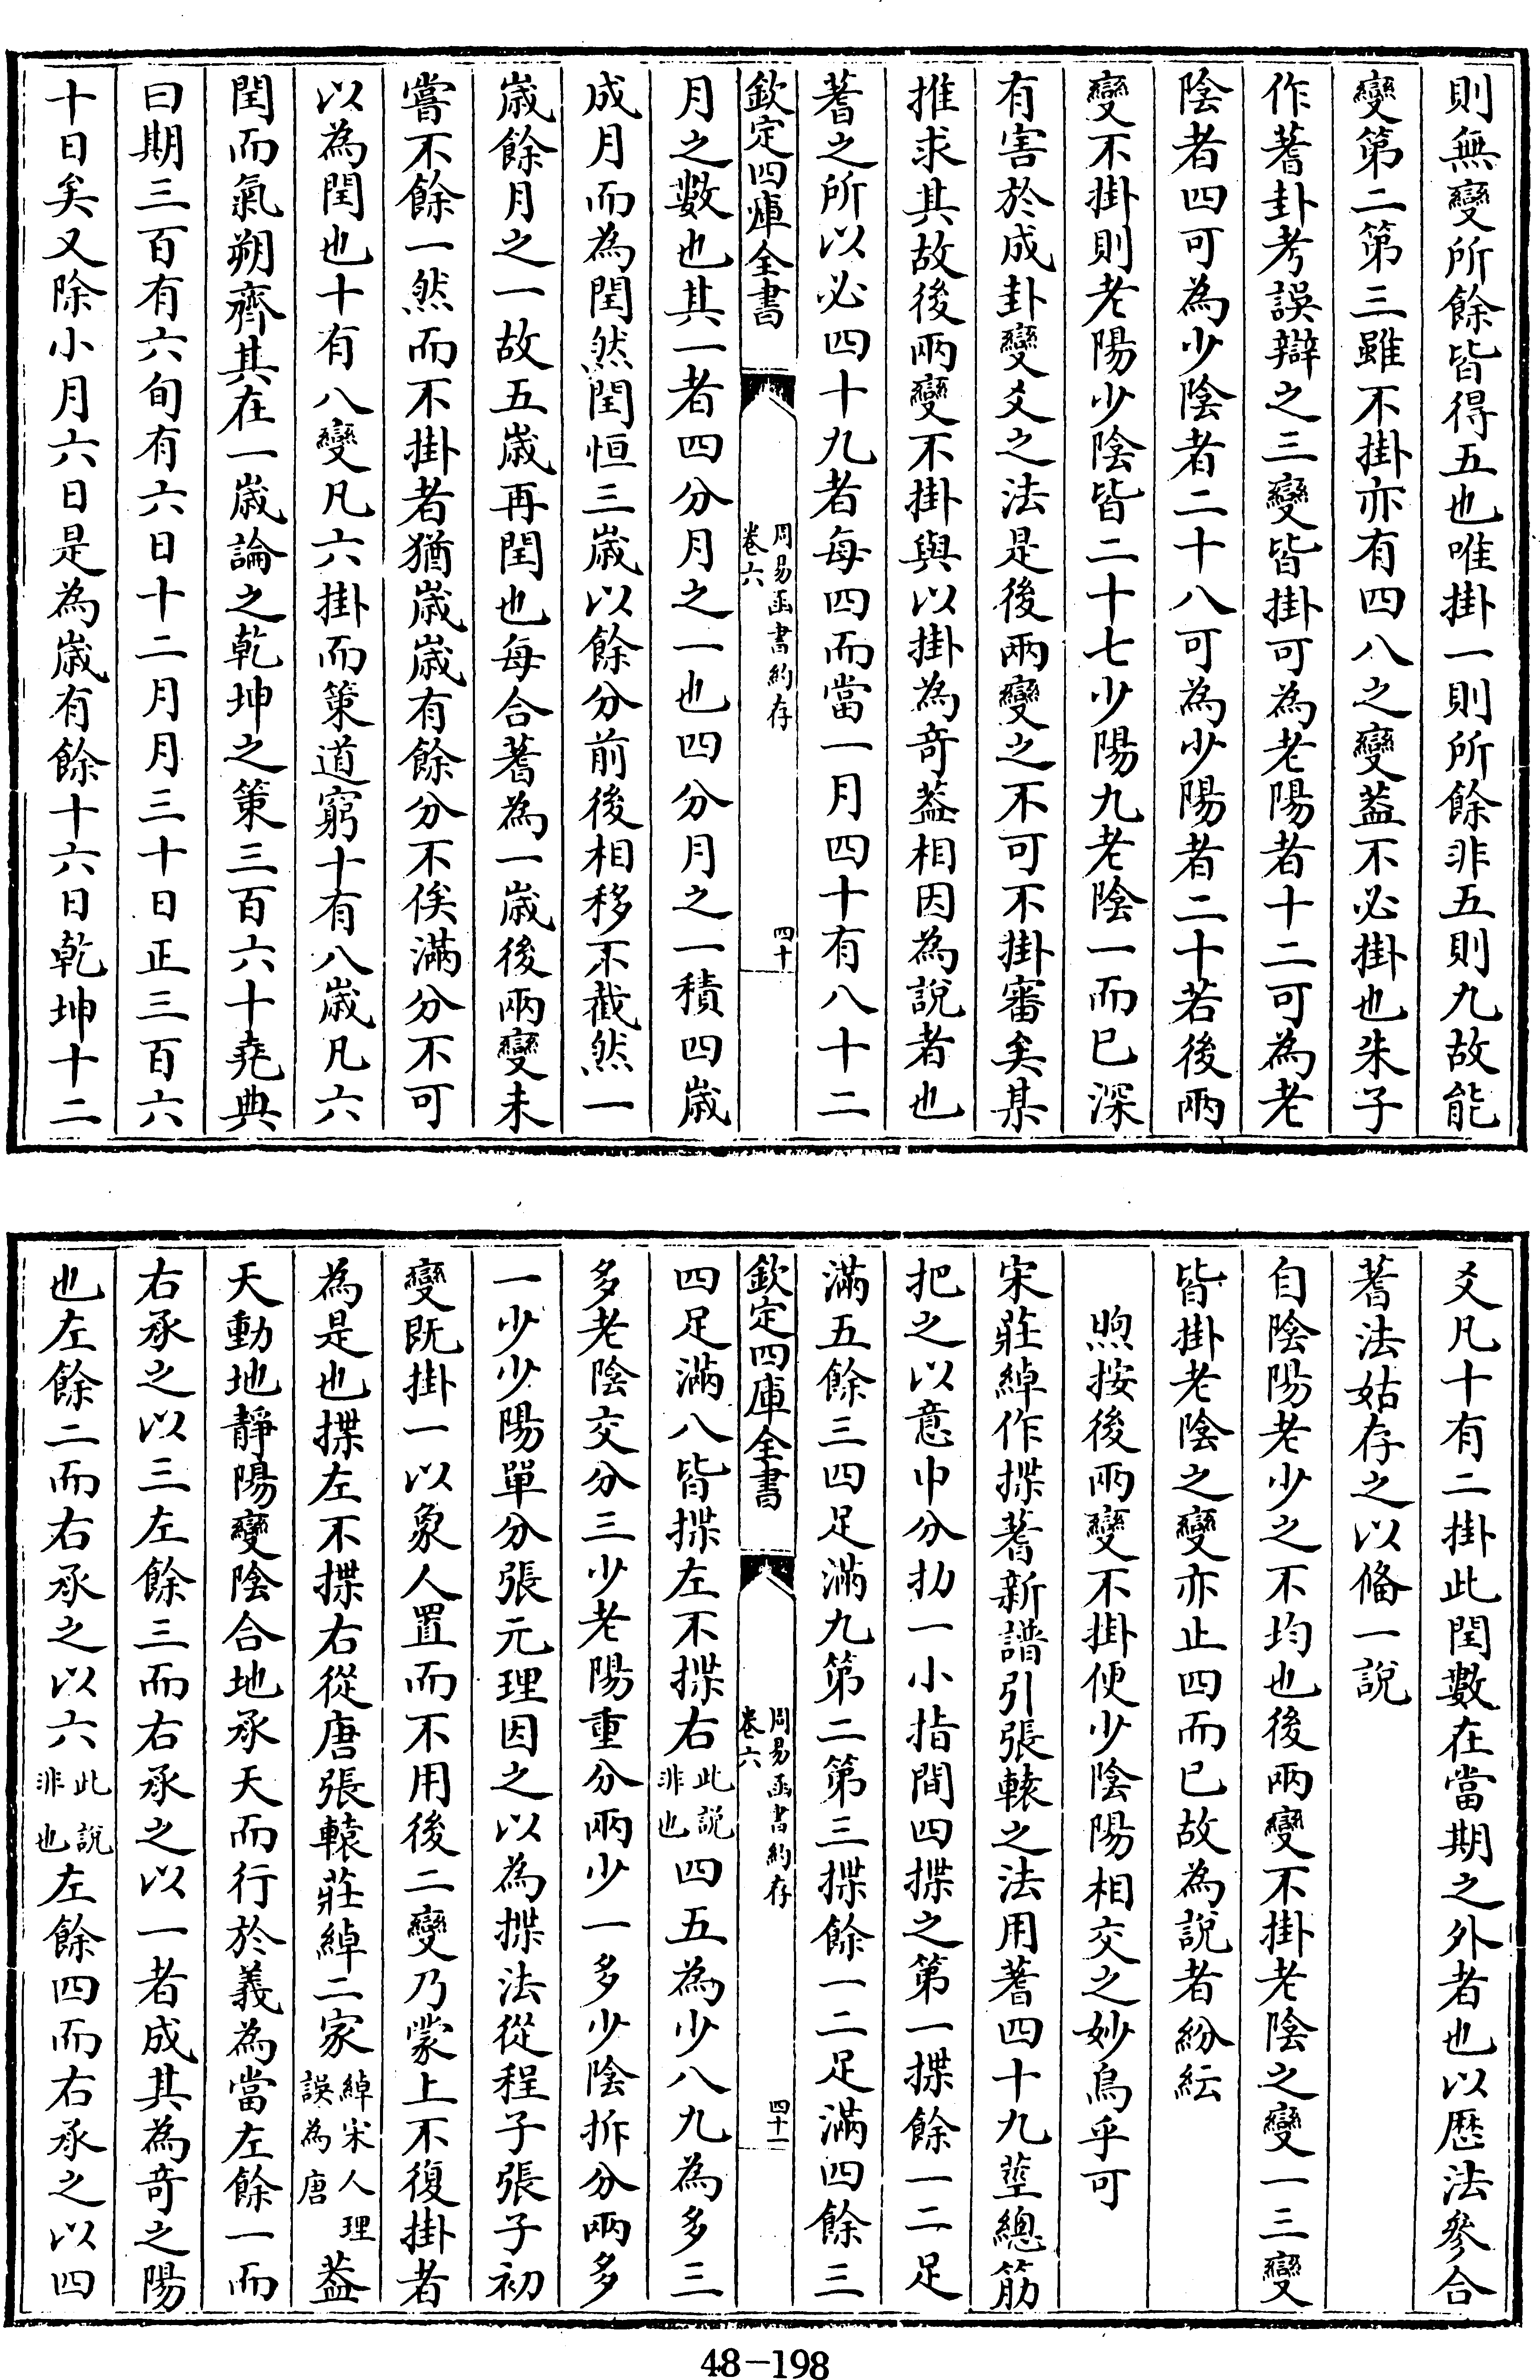 則無變所餘皆得五也唯掛一則所餘非五則九故能
變第二第三雖不掛亦有四八之變葢不必掛也朱子
作蓍卦考誤辯之三變皆掛可為老陽者十二可為老
陰者四可為少陰者二十八可為少陽者二十若後兩
變不掛則老陽少陰皆二十七少陽九老陰一而已深
有害於成卦變爻之法是後兩變之不可不掛審矣某
推求其故後兩變不掛與以掛為奇葢相因為說者也
蓍之所以必四十九者每四而當一月四十有八十二
欽定四庫全書
周易函書約存
卷六
四十
月之數也其一者四分月之一也四分月之一積四歲
成月而為閏然閏恒三歲以餘分前後相移不截然一
歲餘月之一故五歲再閏也每合蓍為一歲後兩變未
嘗不餘一然而不掛者猶歲歲有餘分不俟滿分不可
以為閏也十有八變凡六掛而策道窮十有八歲凡六
閏而氣朔齊其在一歲論之乾坤之策三百六十堯典
曰期三百有六旬有六日十二月月三十日正三百六
十日矣又除小月六日是為歲有餘十六日乾坤十二
爻凡十有二掛此閏數在當期之外者也以歷法參合
蓍法姑存之以備一說
自陰陽老少之不均也後兩變不掛老陰之變一三變
皆掛老陰之變亦止四而已故為說者紛紜
煦按後兩變不掛便少陰陽相交之妙烏乎可
宋莊綽作揲蓍新譜引張轅之法用蓍四十九莖總筋
把之以意中分扐一小指間四揲之第一揲餘一二足
滿五餘三四足滿九第二第三揲餘一二足滿四餘三
欽定四庫全書
周易函書約存
卷六
四十一
四足滿八皆揲左不揲右此說非也四五為少八九為多三
多老陰交分三少老陽重分兩少一多少陰拆分兩多
一少少陽單分張元理因之以為揲法從程子張子初
變既掛一以象人置而不用後二變乃蒙上不復掛者
為是也揲左不揲右從唐張轅莊綽二家綽宋人理誤為唐葢
天動地靜陽變陰合地承天而行於義為當左餘一而
右承之以三左餘三而右承之以一者成其為奇之陽
也左餘二而右承之以六此說非也左餘四而右承之以四
48-198